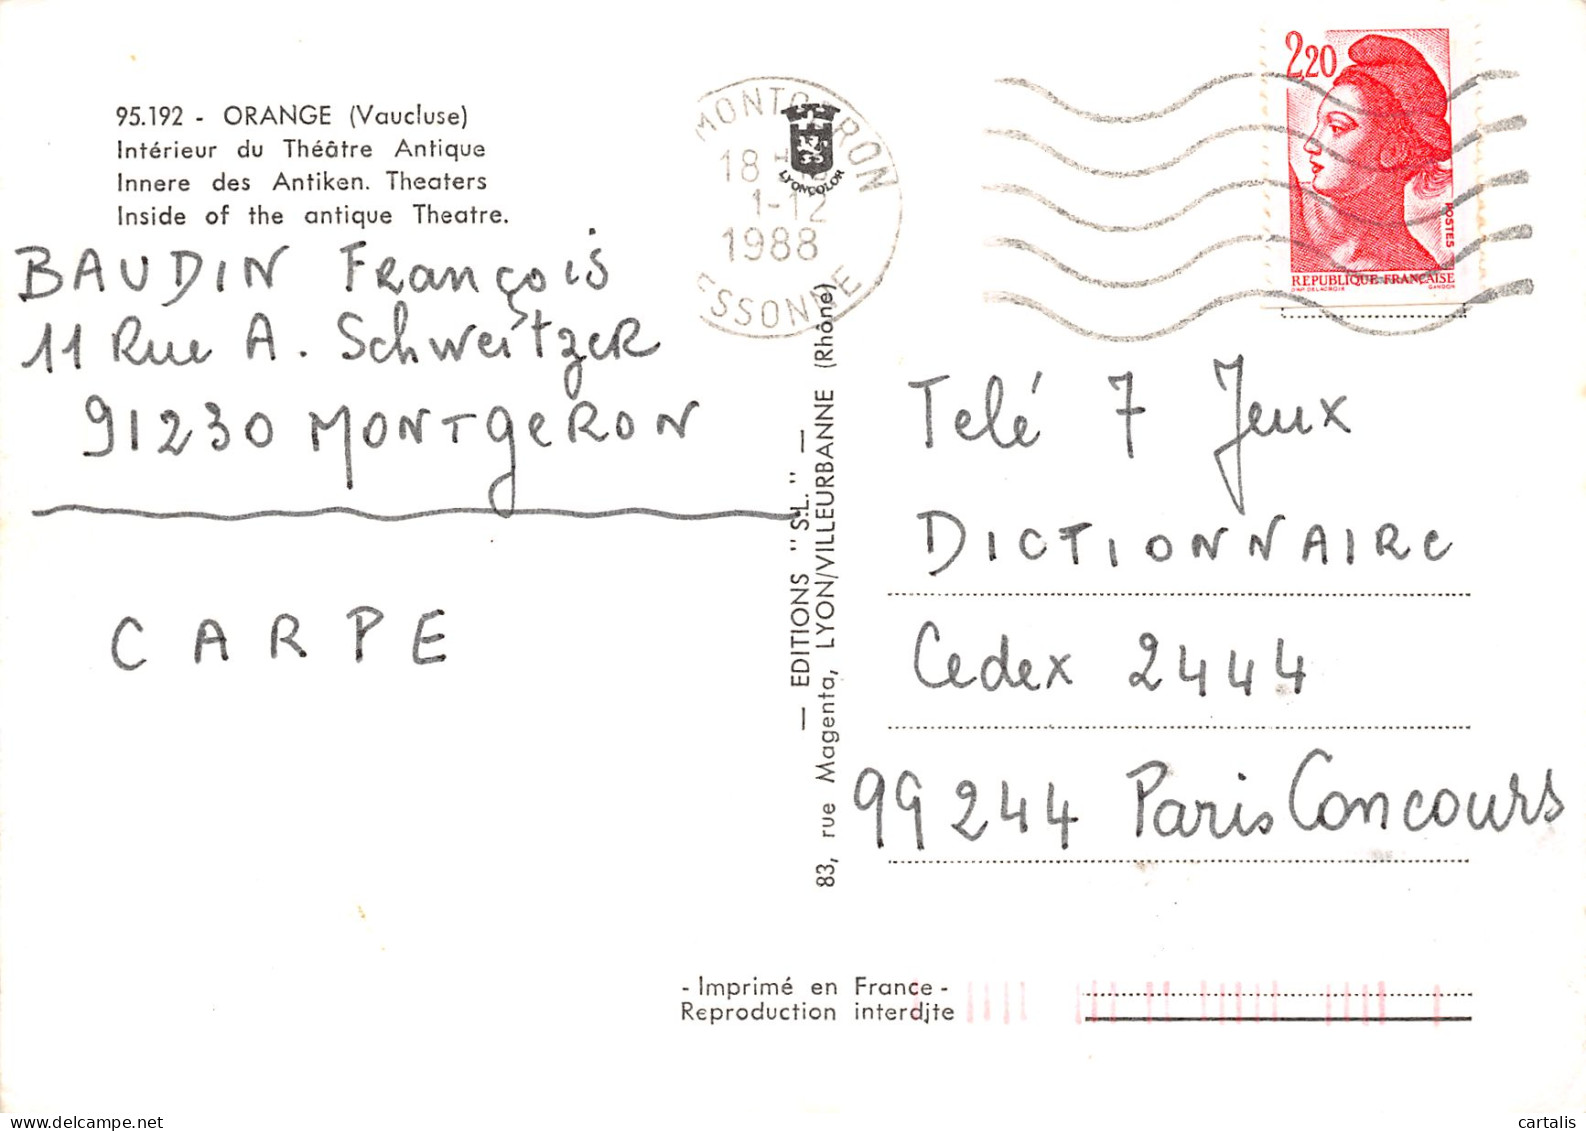 95.192 - ORANGE (Vaucluse)
Intérieur du Théâtre Antique
Innere des Antiken. Theaters
Inside of the antique Theatre.
BAUDIN François
11 Rue A. Schweitzer
91230 MONTgeRON
CARPE
MONTGERON
18 H
1-12
1988
ESSONNE
LYONCOLOR
— EDITIONS "S.L." —
83, rue Magenta, LYON/VILLEURBANNE (Rhône)
2,20
POSTES
REPUBLIQUE FRANÇAISE
D'AP. DELACROIX GANDON
Telé 7 Jeux
DICTIONNAIRE
Cedex 2444
99244 Paris Concours
- Imprimé en France -
Reproduction interdite
cartalis